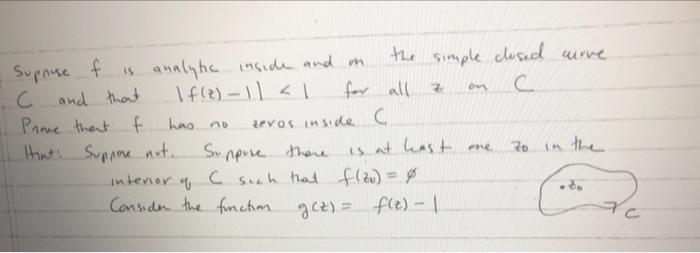 Suppose f is analytic inside and on the simple closed curve
C and that |f(z) - 1| < 1 for all z on C
Prove that f has no zeros inside C
Hint: Suppose not. Suppose there is at least one z0 in the
interior of C such that f(z0) = ∅
Consider the function g(z) = f(z) - 1
• z0
C